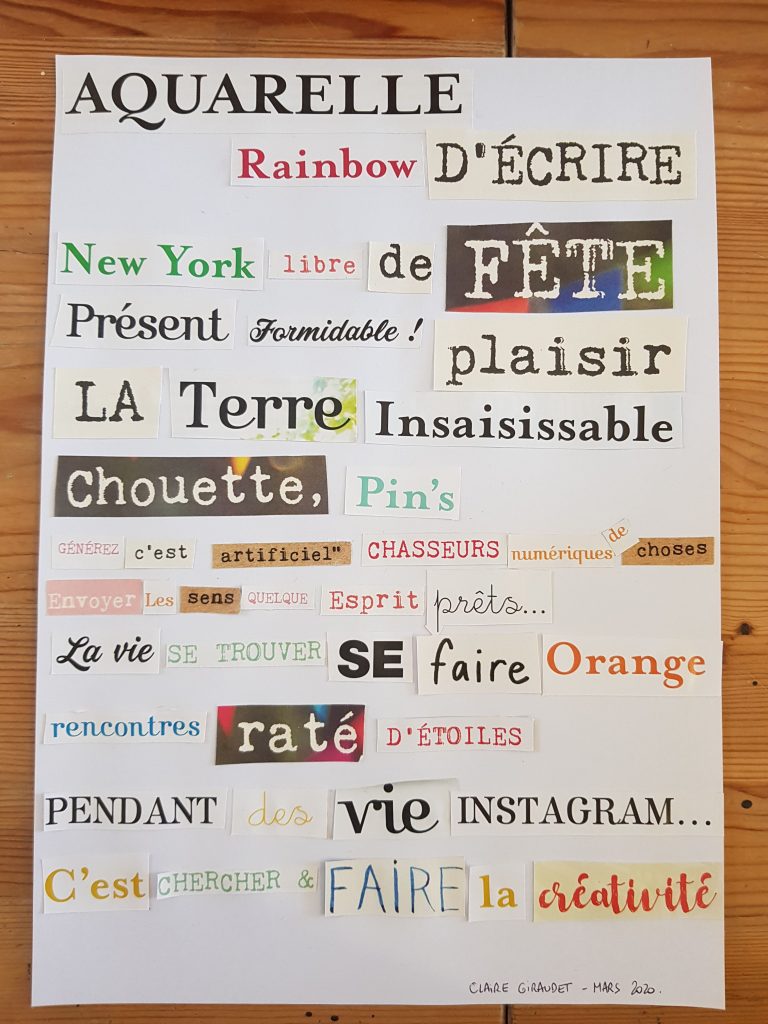 AQUARELLE
Rainbow D'ÉCRIRE
New York libre de FÊTE
Présent Formidable ! plaisir
LA Terre Insaisissable
Chouette, Pin's
GÉNÉREZ c'est artificiel" CHASSEURS numériques de choses
Envoyer Les sens QUELQUE Esprit prêts...
La vie SE TROUVER SE faire Orange
rencontres raté D'ÉTOILES
PENDANT des vie INSTAGRAM...
C'est CHERCHER & FAIRE la créativité
CLAIRE GIRAUDET - MARS 2020.